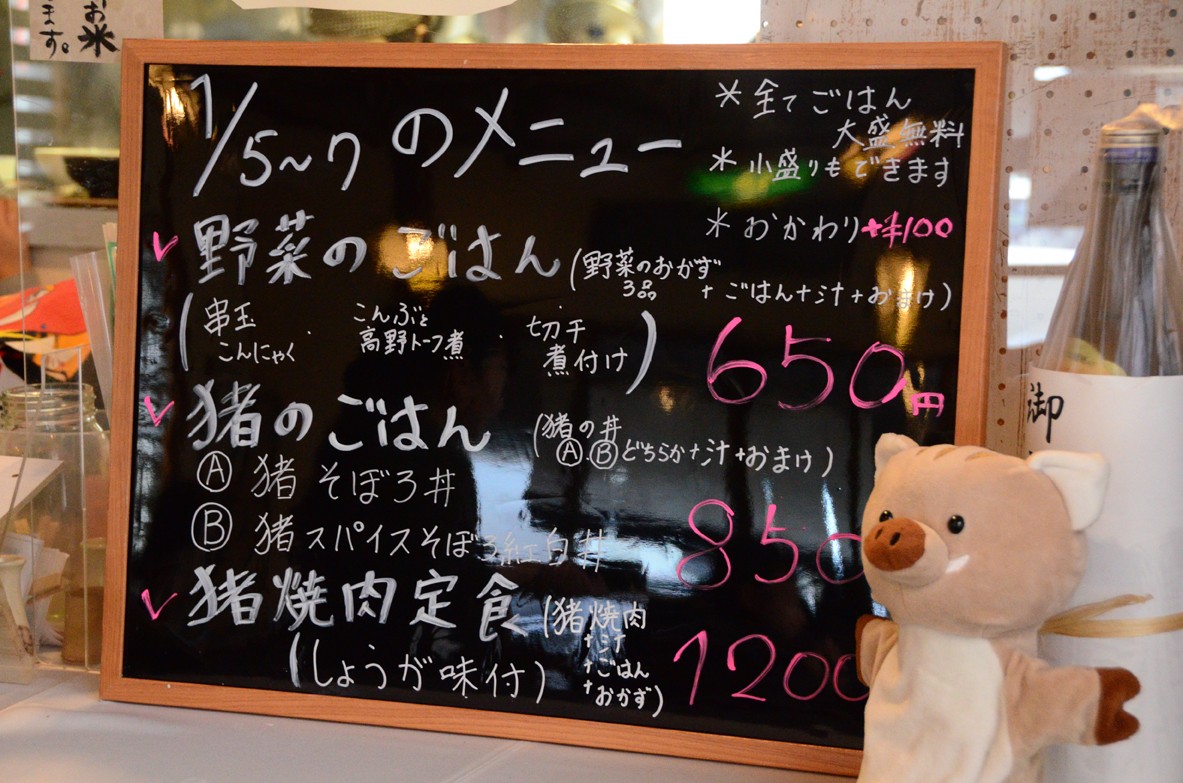 お米
ます。
1/5~7 のメニュー
* 全てごはん
大盛無料
* 小盛りもできます
* おかわり+¥100
✓ 野菜のごはん (野菜のおかず
3品 + ごはん+汁+おまけ)
(串玉 こんぶと 切干
こんにゃく ・ 高野トーフ煮 ・ 煮付け)
650円
✓ 猪のごはん (猪の丼
Ⓐ.Ⓑどちらか+汁+おまけ)
Ⓐ 猪 そぼろ丼
Ⓑ 猪スパイスそぼろ紅白丼
850
✓ 猪焼肉定食 (猪焼肉
+汁
+ごはん
+おかず)
(しょうが味付)
1200
御